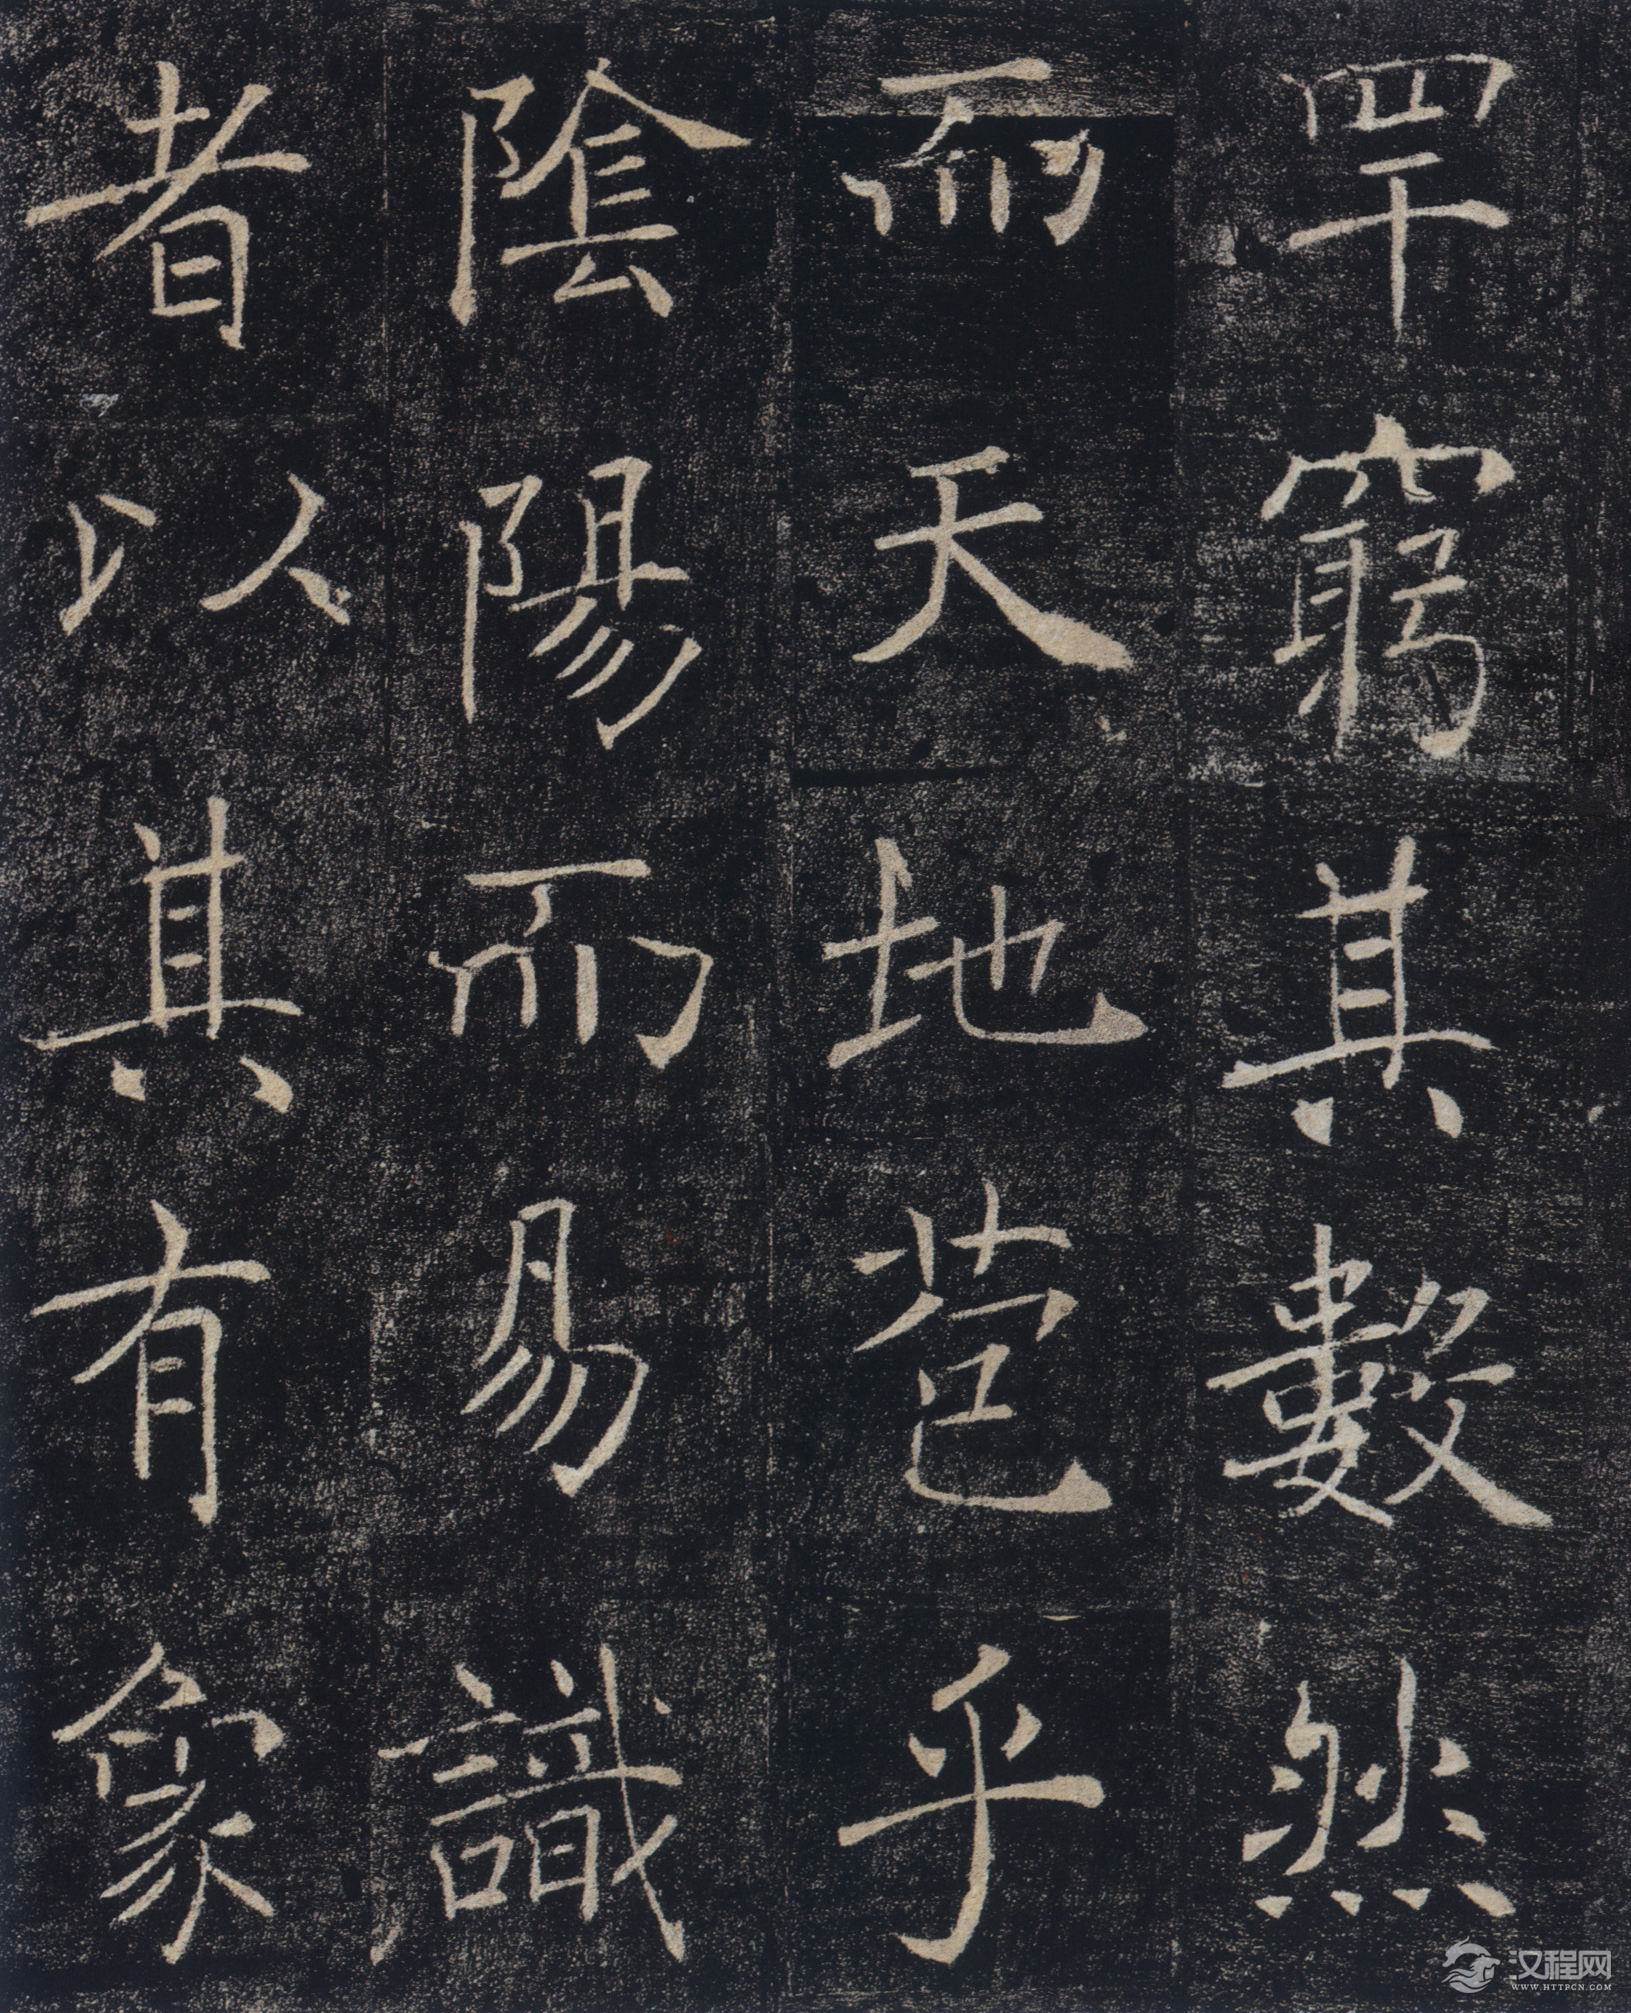 罕窮其數然
而天地苞乎
陰陽而易識
者以其有象
汉程网
WWW.HTTPCN.COM